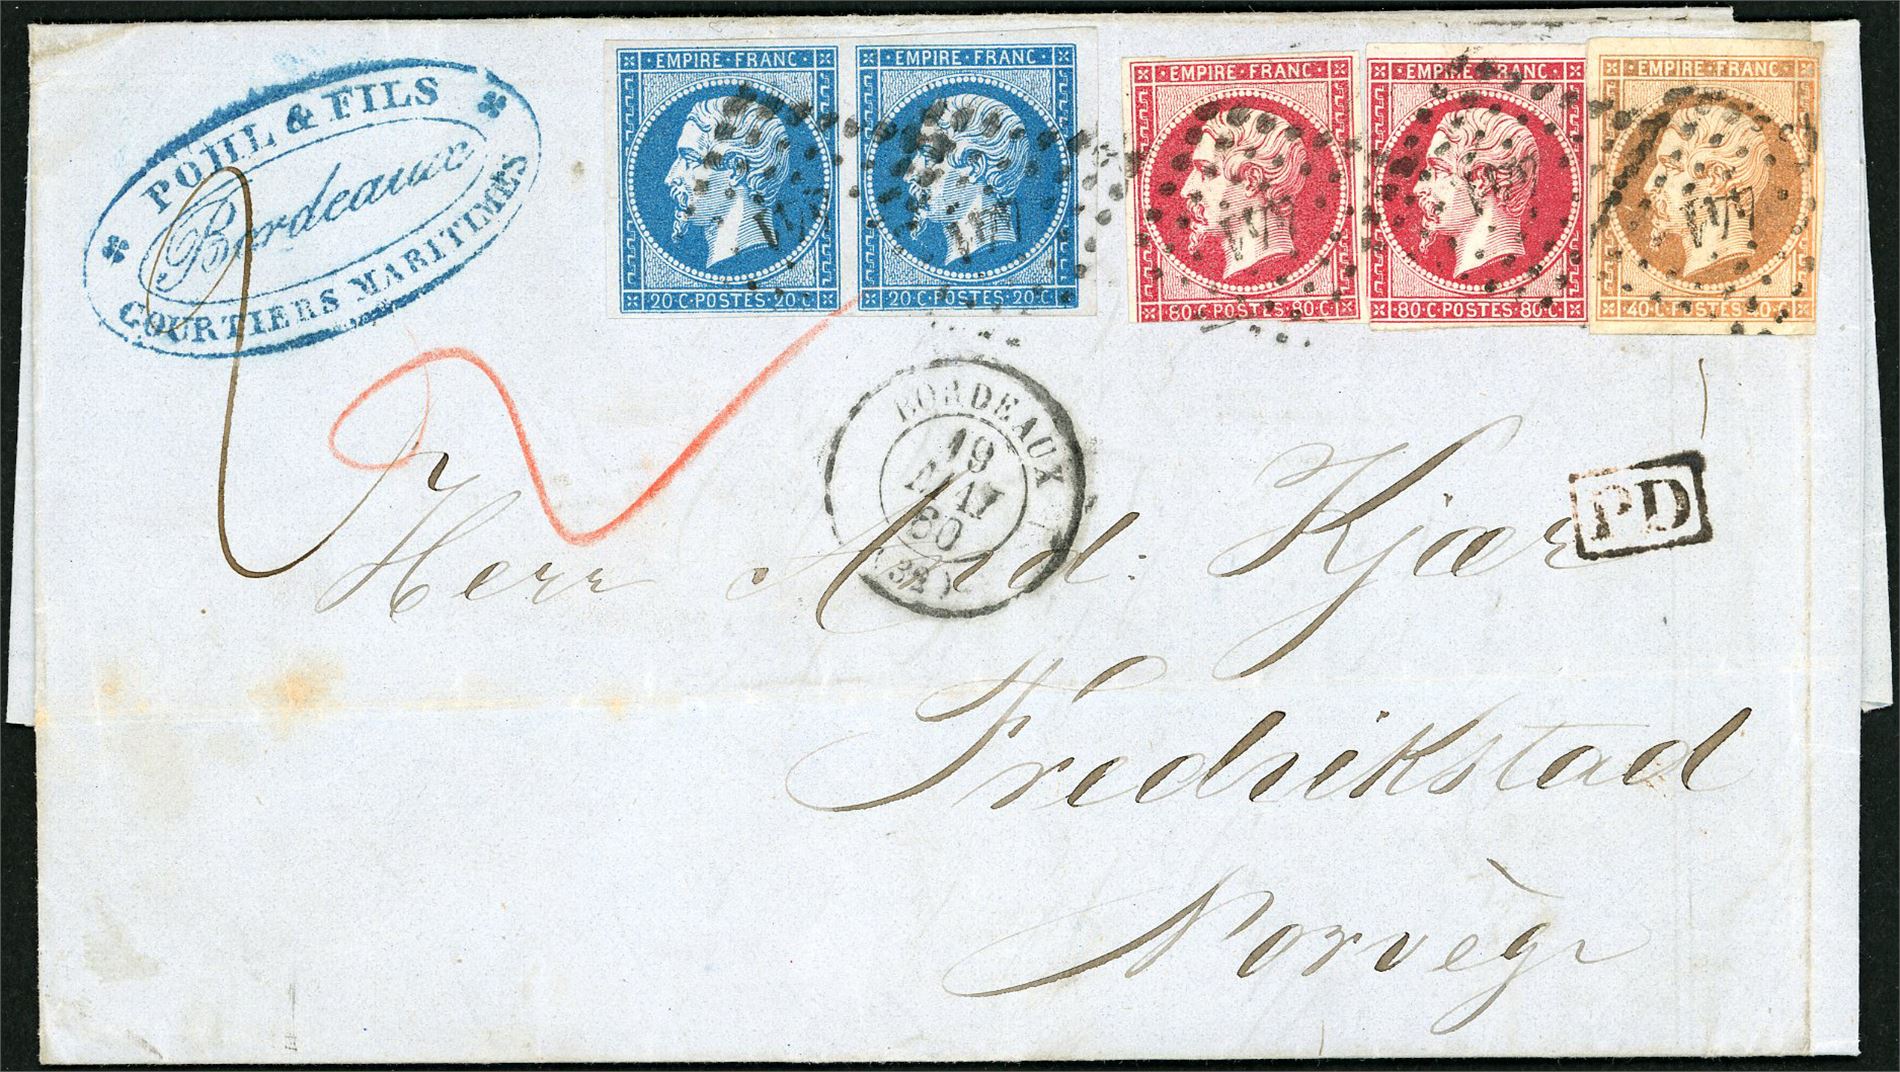 POHL & FILS
Bordeaux
COURTIERS MARITIMES
EMPIRE · FRANC
20·C·POSTES·20·C
EMPIRE · FRANC
20·C·POSTES·20·C
EMPIRE · FRANC
80·C·POSTES·80·C
EMPIRE · FRANC
80·C·POSTES·80·C
EMPIRE · FRANC
40·C·POSTES·40·C
2
BORDEAUX
19
MAI
60
(32)
PD
Herr And: Kjær
Fredrikstad
Norvège